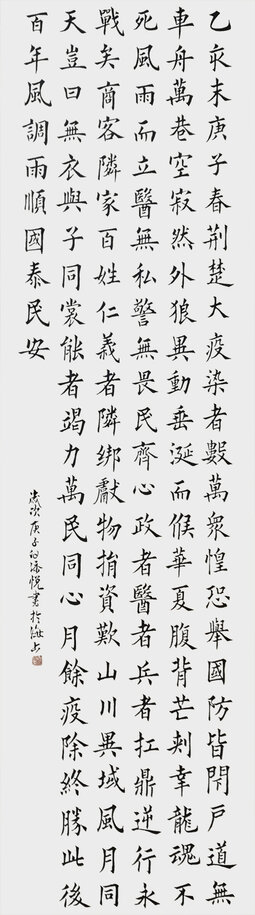 乙亥末庚子春荆楚大疫染者數萬衆惶恐舉國防皆閇戶道無
車舟萬巷空寂然外狼異動垂涎而候華夏腹背芒刺幸龍魂不
死風雨而立醫無私警無畏民齊心政者醫者兵者扛鼎逆行永
戰矣商客隣家百姓仁義者隣綁獻物捐資歎山川異域風月同
天豈曰無衣與子同裳能者竭力萬民同心月餘疫除終勝此後
百年風調雨順國泰民安
歲次庚子初悅書於海上